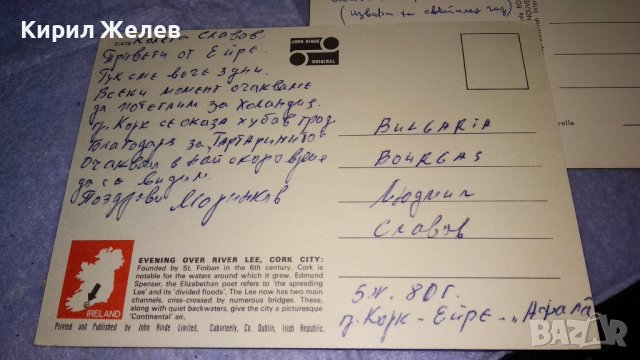 Кирил Желев
(извати ка светилен год)
2/479
Колега Славов
Привети от Ейре.
Тук сме вече 3 дни.
Всеки момент очакваме
да потеглим за Холандия.
гр. Корк се оказа хубав град.
Благодаря за "Тартарините"
Очаквай в най скоро време
да се видим.
Поздрави Маринков
JOHN HINDE
ORIGINAL
BULGARIA
BOURGAS
Людмил
Славов
5.IV. 80г.
гр. Корк - Ейре - "Афала"
EVENING OVER RIVER LEE, CORK CITY:
Founded by St. Finbarr in the 6th century, Cork is
notable for the waters around which it grew. Edmund
Spenser, the Elizabethan poet refers to 'the spreading
Lee' and its 'divided floods'. The Lee now has two main
channels, criss-crossed by numerous bridges. These,
along with quiet backwaters, give the city a picturesque
'Continental' air.
IRELAND
Printed and Published by John Hinde Limited, Cabinteely, Co. Dublin, Irish Republic.
bazar.bg